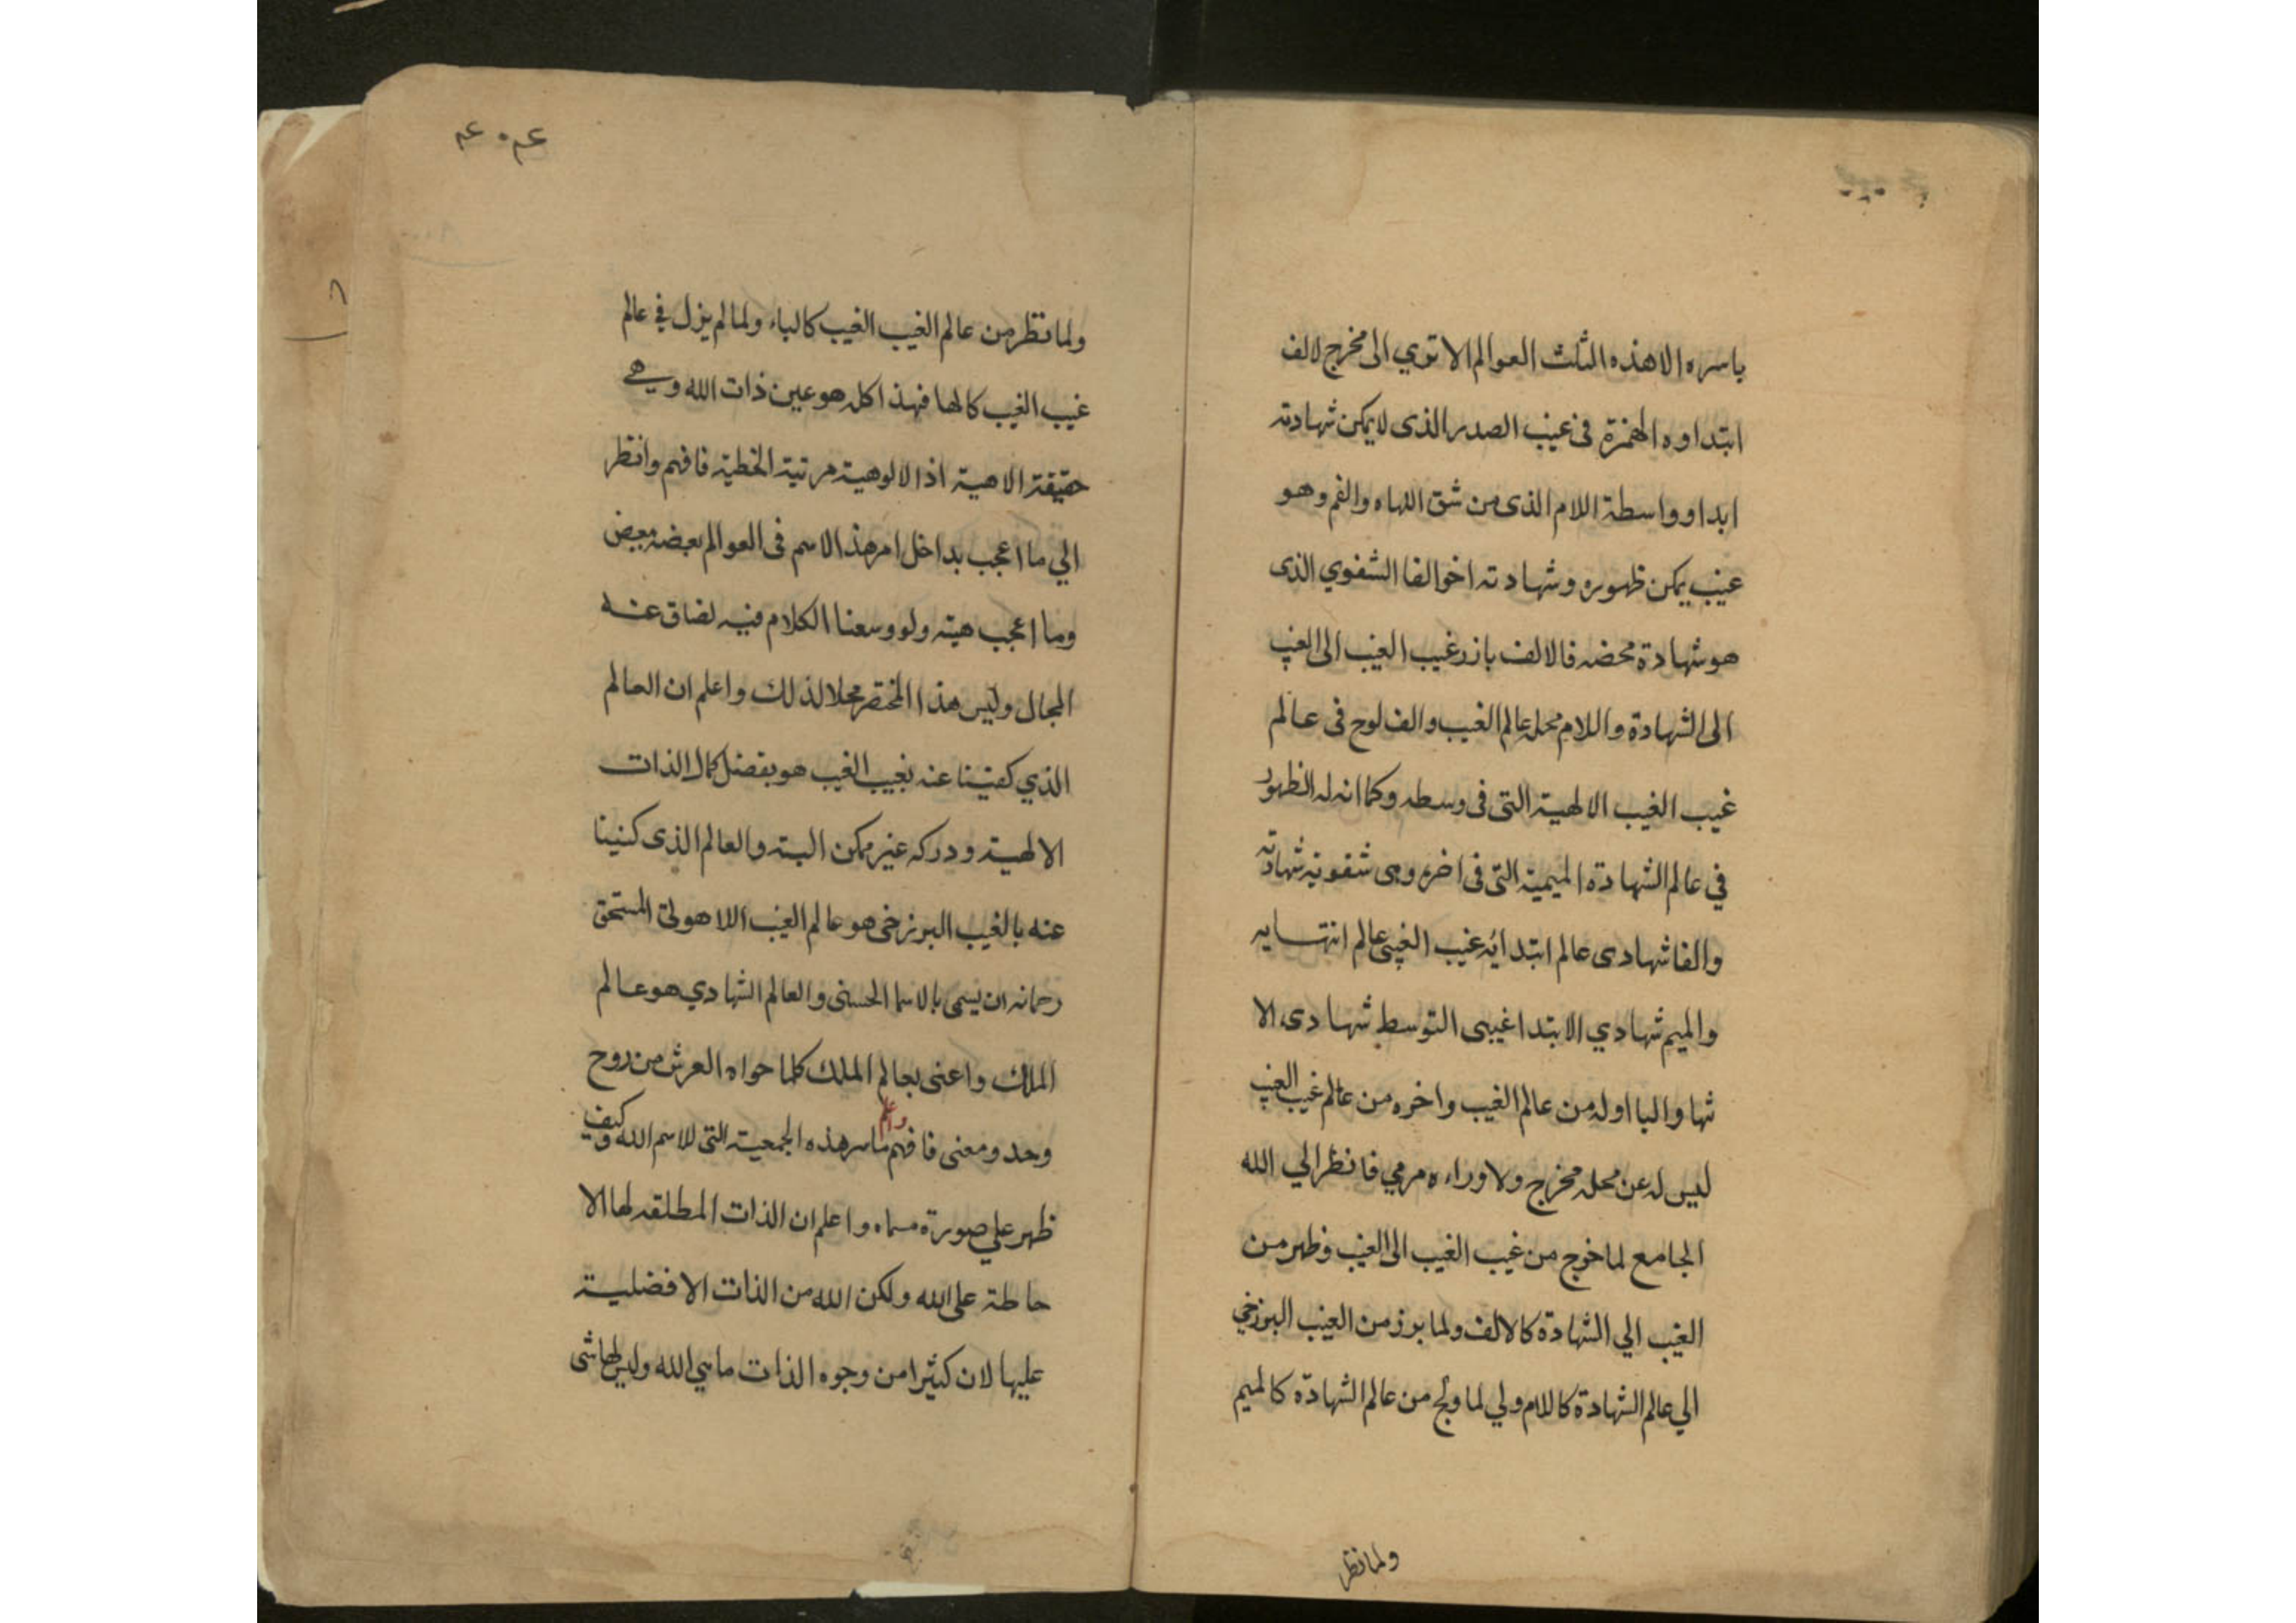 باسره الا هذه الثلث العوالم الا توي الى مخرج لالف
ابتداوه الهمزة فى غيب الصدر الذى لا يمكن شهادته
ابدا وواسطة اللام الذى من شق اللهاه والفم وهو
غيب يمكن ظهوره وشهادته اخوالفا الشفوي الذى
هو شهادة محضه فالالف بارز غيب الغيب الى الغيب
الى الشهادة واللام محله عالم الغيب والف لوح فى عالم
غيب الغيب الالهية التى فى وسطه وكما انه له الظهور
في عالم الشهادة الميمية التى فى اخره وهى شفوية شهادته
والفا شهادى عالم ابتدائه غيب الغيبى عالم انتهايه
والميم شهادي الابتدا غيبى التوسط شهادى الا
نتها والبا اوله من عالم الغيب واخره من عالم غيب الغيب
ليس له عن محله مخرج ولا وراءه مرمي فانظر الي الله
الجامع لما خرج من غيب الغيب الى الغيب وظهر من
الغيب الي الشهادة كالالف ولما برز من الغيب البرزخي
الي عالم الشهادة كاللام ولي لما ولج من عالم الشهادة كالميم
ولما نظر
ولما نظر من عالم الغيب الغيب كالباء ولما لم يزل في عالم
غيب الغيب كالها فهذا كله هو عين ذات الله وهي
حقيقة الاهية اذ الالوهية مرتبة الخطية فافهم وانظر
الي ما اعجب بداخل امر هذا الاسم فى العوالم بعضه ببعض
وما اعجب هيته ولو وسعنا الكلام فيه لضاق عنه
المجال وليس هذا المختصر محلا لذلك واعلم ان العالم
الذي كنينا عنه بغيب الغيب هو بفضل كمال الذات
الالهية ودركه غير ممكن البته والعالم الذى كنينا
عنه بالغيب البرزخى هو عالم الغيب اللاهوتى المستحق
رحمانه ان يسمى بالاسما الحسنى والعالم الشهادي هو عالم
الملك واعنى بعالم الملك كلما حواه العرش من روح
وحد ومعنى فافهم واعلم ما سر هذه الجمعية التى للاسم الله وكيف
ظهر علي صورة مسماه واعلم ان الذات المطلقه لها الا
حاطة على الله ولكن الله من الذات الافضلية
عليها لان كثيرا من وجوه الذات ما هي الله وليس لها شى